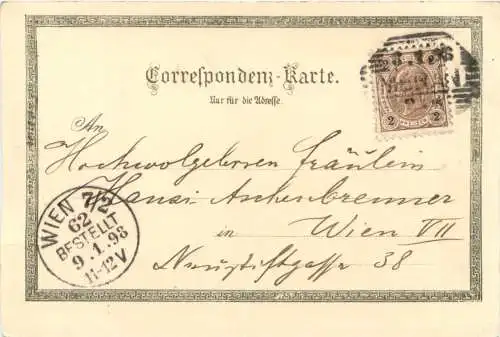 Correspondenz-Karte.
Nur für die Adresse.
An
Hochwolgeboren Fräulein
Hansi Aschenbrenner
in Wien VII
Neustiftgasse 38
WIEN 7/2
62
BESTELLT
9.1.98
11-12V
2 2
2 2